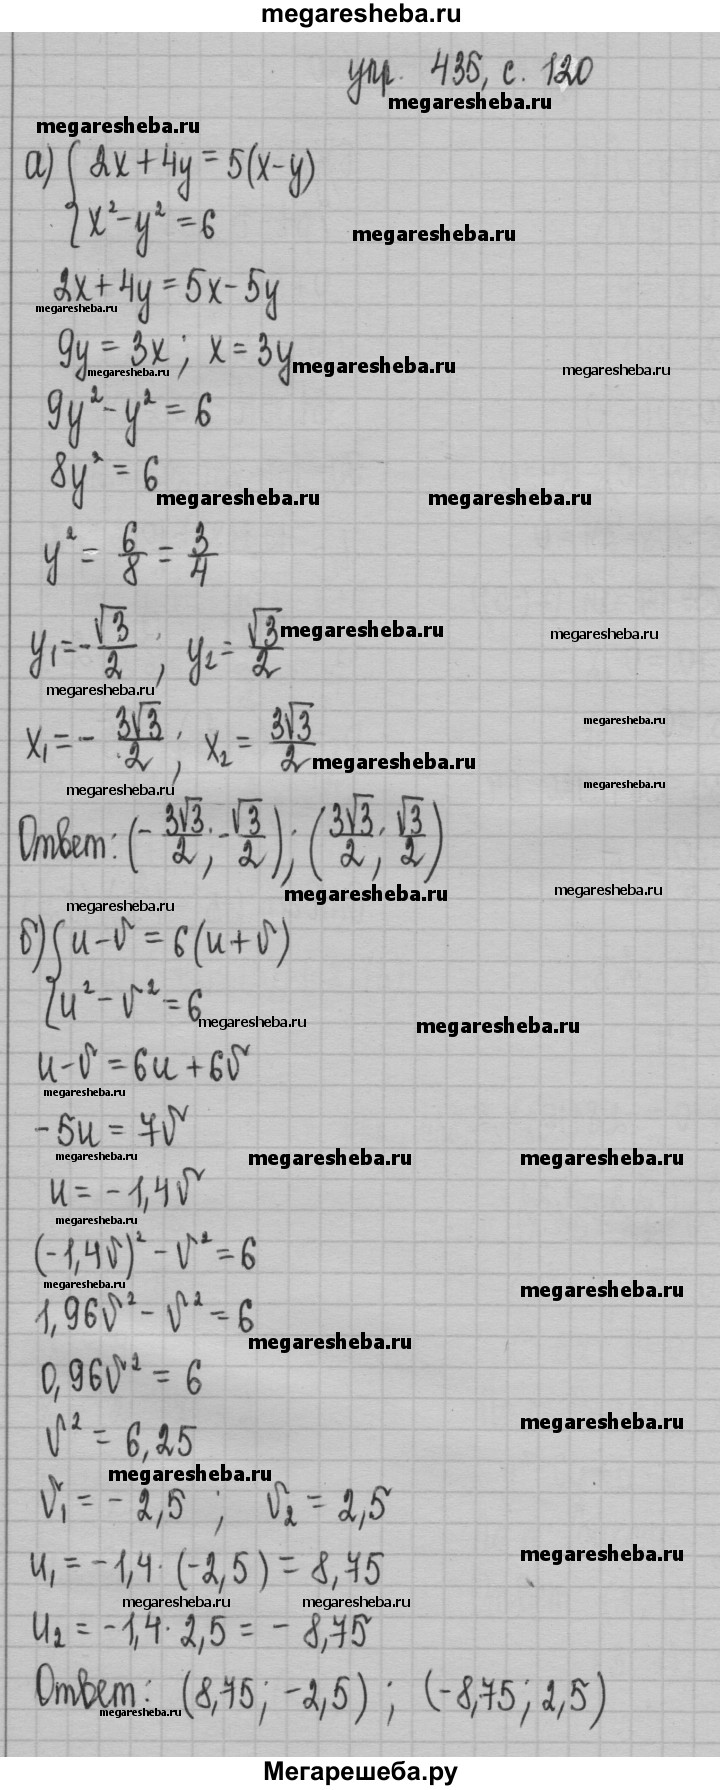 megaresheba.ru
упр. 435, с. 120
megaresheba.ru
megaresheba.ru
а) { 2x + 4y = 5(x - y)
x² - y² = 6
megaresheba.ru
2x + 4y = 5x - 5y
megaresheba.ru
9y = 3x ; x = 3y
megaresheba.ru megaresheba.ru megaresheba.ru
9y² - y² = 6
8y² = 6
megaresheba.ru megaresheba.ru
y² = 6/8 = 3/4
y₁ = -√3/2 ; y₂ = √3/2
megaresheba.ru megaresheba.ru
megaresheba.ru
megaresheba.ru
x₁ = - 3√3/2 ; x₂ = 3√3/2
megaresheba.ru
megaresheba.ru megaresheba.ru
Ответ: (- 3√3/2 ; -√3/2) ; (3√3/2 ; √3/2)
megaresheba.ru megaresheba.ru
megaresheba.ru
б) { u - v = 6(u + v)
u² - v² = 6
megaresheba.ru megaresheba.ru
u - v = 6u + 6v
megaresheba.ru
-5u = 7v
megaresheba.ru megaresheba.ru megaresheba.ru
u = -1,4v
megaresheba.ru
(-1,4v)² - v² = 6
megaresheba.ru megaresheba.ru
1,96v² - v² = 6
megaresheba.ru
0,96v² = 6
megaresheba.ru
v² = 6,25
megaresheba.ru
v₁ = -2,5 ; v₂ = 2,5
megaresheba.ru
u₁ = -1,4 · (-2,5) = 8,75
megaresheba.ru megaresheba.ru
u₂ = -1,4 · 2,5 = - 8,75
Ответ: (8,75 ; -2,5) ; (-8,75 ; 2,5)
megaresheba.ru
Мегарешеба.ру